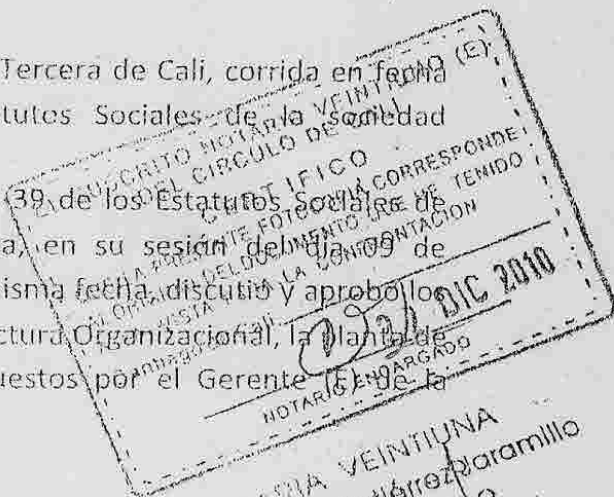 Tercera de Cali, corrida en fecha
tutos Sociales de la sociedad
39 de los Estatutos Sociales de
a, en su sesión del día 09 de
isma fecha, discutió y aprobó los
ctura Organizacional, la planta de
uestos por el Gerente (E) de la
EL SUSCRITO NOTARIO VEINTIUNO (E)
DEL CIRCULO DE CALI
CERTIFICO
FOTOCOPIA CORRESPONDE
DEL DOCUMENTO QUE HE TENIDO
LA CONFRONTACION
Santiago
DIC 2010
NOTARIO ENCARGADO
VEINTIUNA
Jaramillo